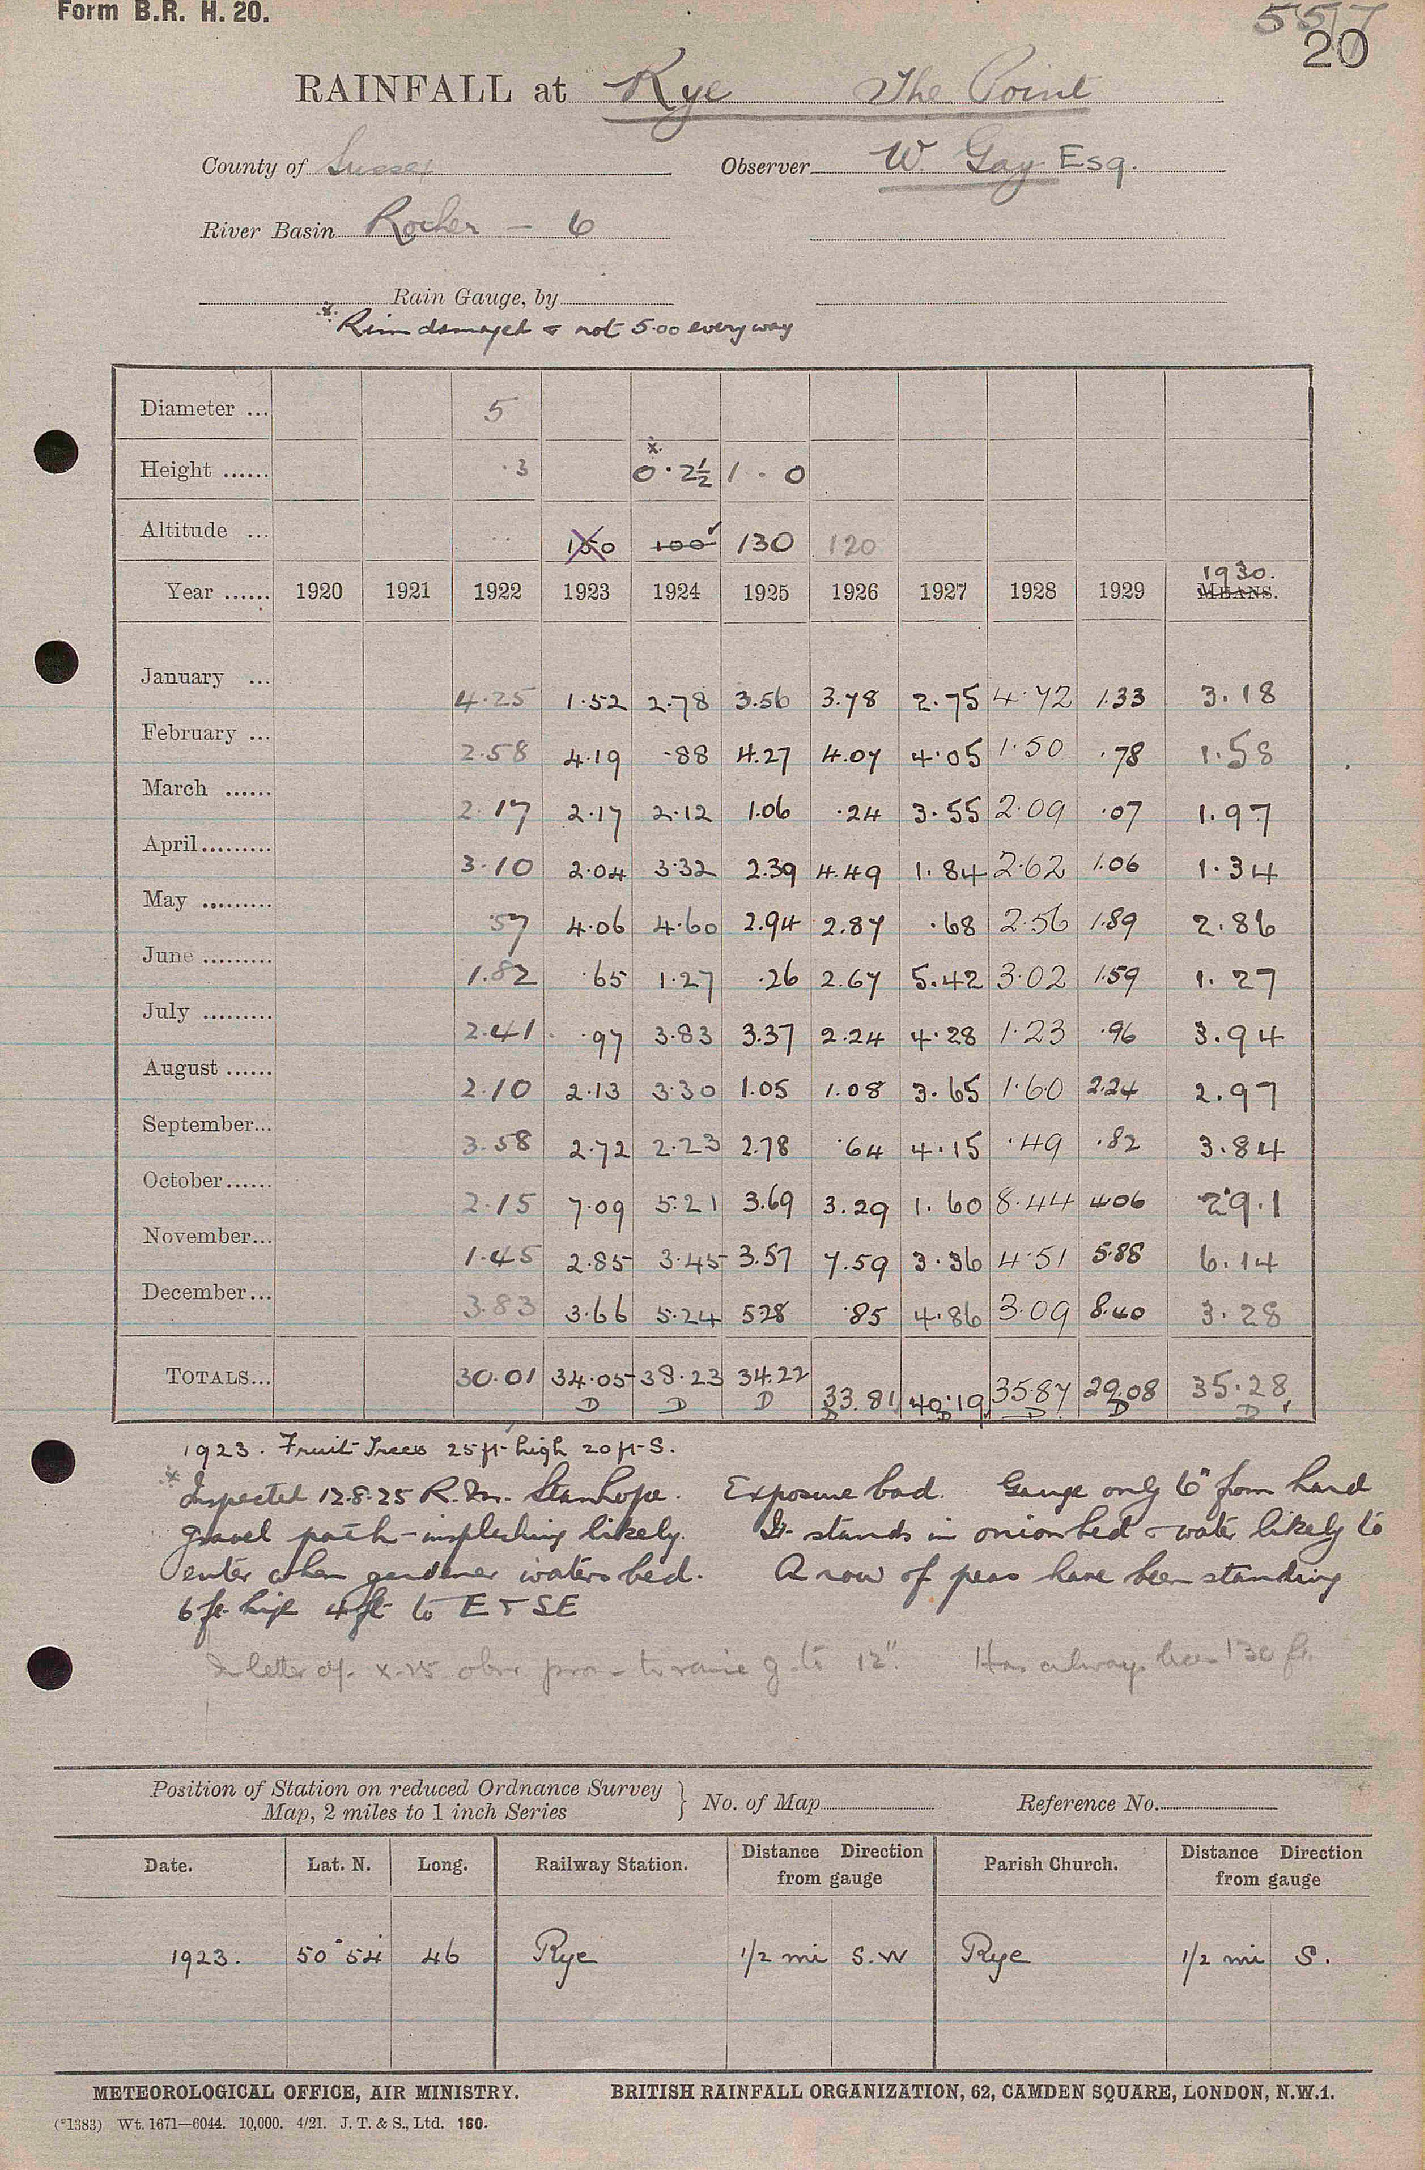 Form B.R. H. 20.
5517
20
RAINFALL at Rye The Point
County of Sussex Observer W. Gay Esq.
River Basin Rother – 6
Rain Gauge, by
* Rim damaged & not 5.00 every way
Diameter ... 5
Height ...... .3 *0.2½ 1 - 0
Altitude ... 150 100 130 120
Year ...... 1920 1921 1922 1923 1924 1925 1926 1927 1928 1929 1930. MEANS.
January ... 4.25 1.52 2.78 3.56 3.78 2.75 4.72 1.33 3.18
February ... 2.58 4.19 .88 4.27 4.07 4.05 1.50 .78 1.58
March ...... 2.17 2.17 2.12 1.06 .24 3.55 2.09 .07 1.97
April......... 3.10 2.04 3.32 2.39 4.49 1.84 2.62 1.06 1.34
May ......... .57 4.06 4.60 2.94 2.87 .68 2.56 1.89 2.86
June ......... 1.82 .65 1.27 .26 2.67 5.42 3.02 1.59 1.27
July ......... 2.41 .97 3.83 3.37 2.24 4.28 1.23 .96 3.94
August ...... 2.10 2.13 3.30 1.05 1.08 3.65 1.60 2.24 2.97
September... 3.58 2.72 2.23 2.78 .64 4.15 .49 .82 3.84
October...... 2.15 7.09 5.21 3.69 3.29 1.60 8.44 4.06 2.91
November... 1.45 2.85 3.45 3.57 7.59 3.36 4.51 5.88 6.14
December... 3.83 3.66 5.24 528 .85 4.86 3.09 8.40 3.28
TOTALS... 30.01 34.05 38.23 34.22 33.81 40.19 35.87 29.08 35.28
D D D D D D D D
1923. Fruit Trees 25 ft high 20 ft S.
* Inspected 12.8.25 R.M. Stanhope. Exposure bad. Gauge only 6" from hard
gravel path – insplashing likely. It stands in onion bed & water likely to
enter when gardener waters bed. A row of peas have been standing
6 ft high 4 ft to E & SE
In letter of x.25 obsr to raise g. to 12". Has always been 130 ft.
Position of Station on reduced Ordnance Survey
Map, 2 miles to 1 inch Series } No. of Map Reference No.
Date. Lat. N. Long. Railway Station. Distance Direction from gauge Parish Church. Distance Direction from gauge
1923. 50° 54 46 Rye 1/2 mi S.W Rye 1/2 mi S.
METEOROLOGICAL OFFICE, AIR MINISTRY. BRITISH RAINFALL ORGANIZATION, 62, CAMDEN SQUARE, LONDON, N.W.1.
(*1383) Wt. 1671—6044. 10,000. 4/21. J. T. & S., Ltd. 160.